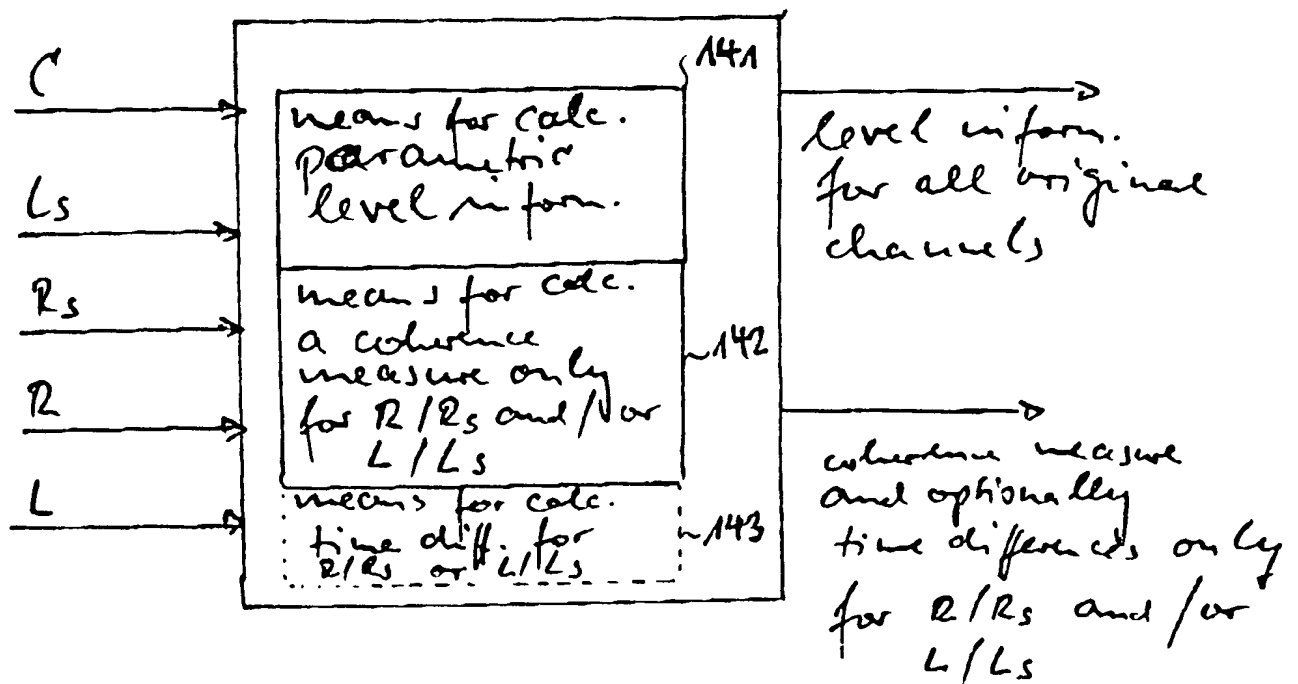 C
Ls
Rs
R
L
141
means for calc.
parametric
level inform.
means for calc.
a coherence
measure only
for R/Rs and/or
L/Ls
142
means for calc.
time diff. for
R/Rs or L/Ls
143
level inform.
for all original
channels
coherence measure
and optionally
time differences only
for R/Rs and/or
L/Ls